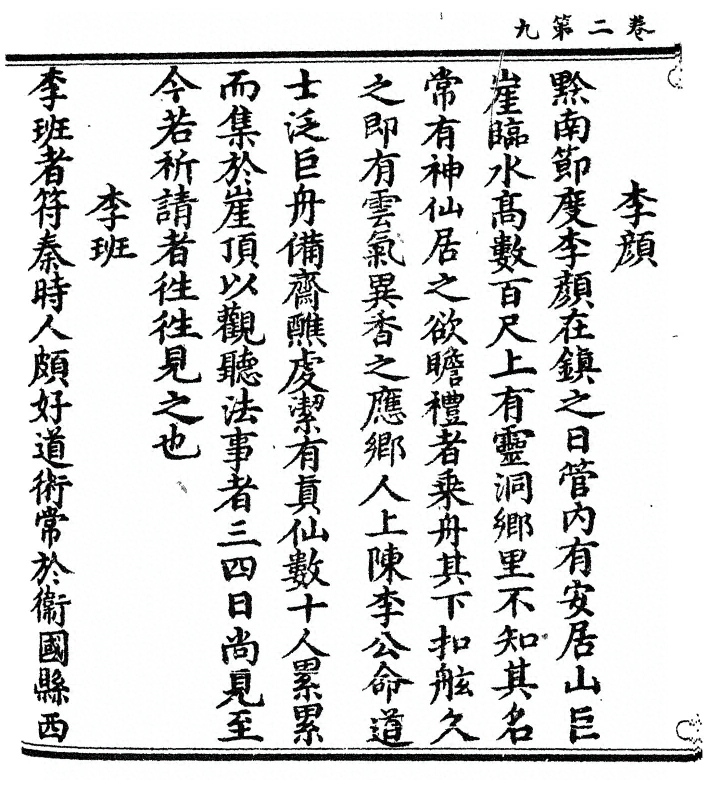 卷二第九
李顔
黔南節度李顔在鎮之日管内有安居山巨
崖臨水髙數百尺上有靈洞鄉里不知其名
常有神仙居之欲瞻禮者乗舟其下扣舷久
之即有雲氣異香之應鄉人上陳李公命道
士泛巨舟備齋醮虔潔有真仙數十人累累
而集於崖頂以觀聽法事者三四日尚見至
今若祈請者徃徃見之也
李班
李班者符秦時人頗好道術常於衞國縣西